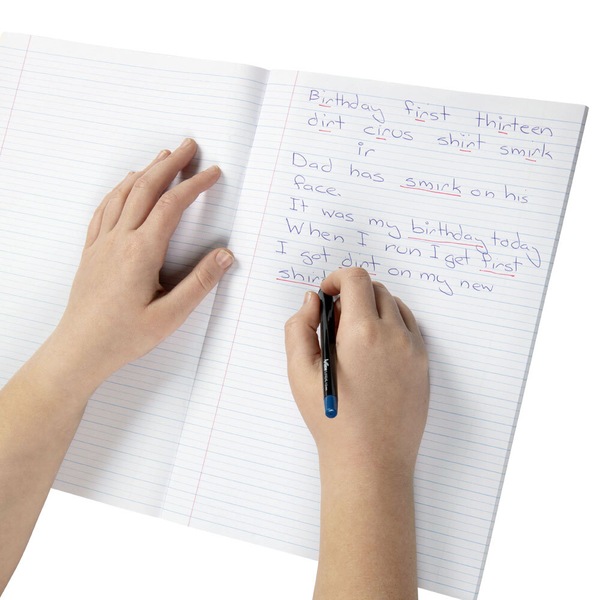 Birthday first thirteen
dirt cirus shirt smirk
ir
Dad has smirk on his
face.
It was my birthday today
When I run I get first
I got dirt on my new
shir